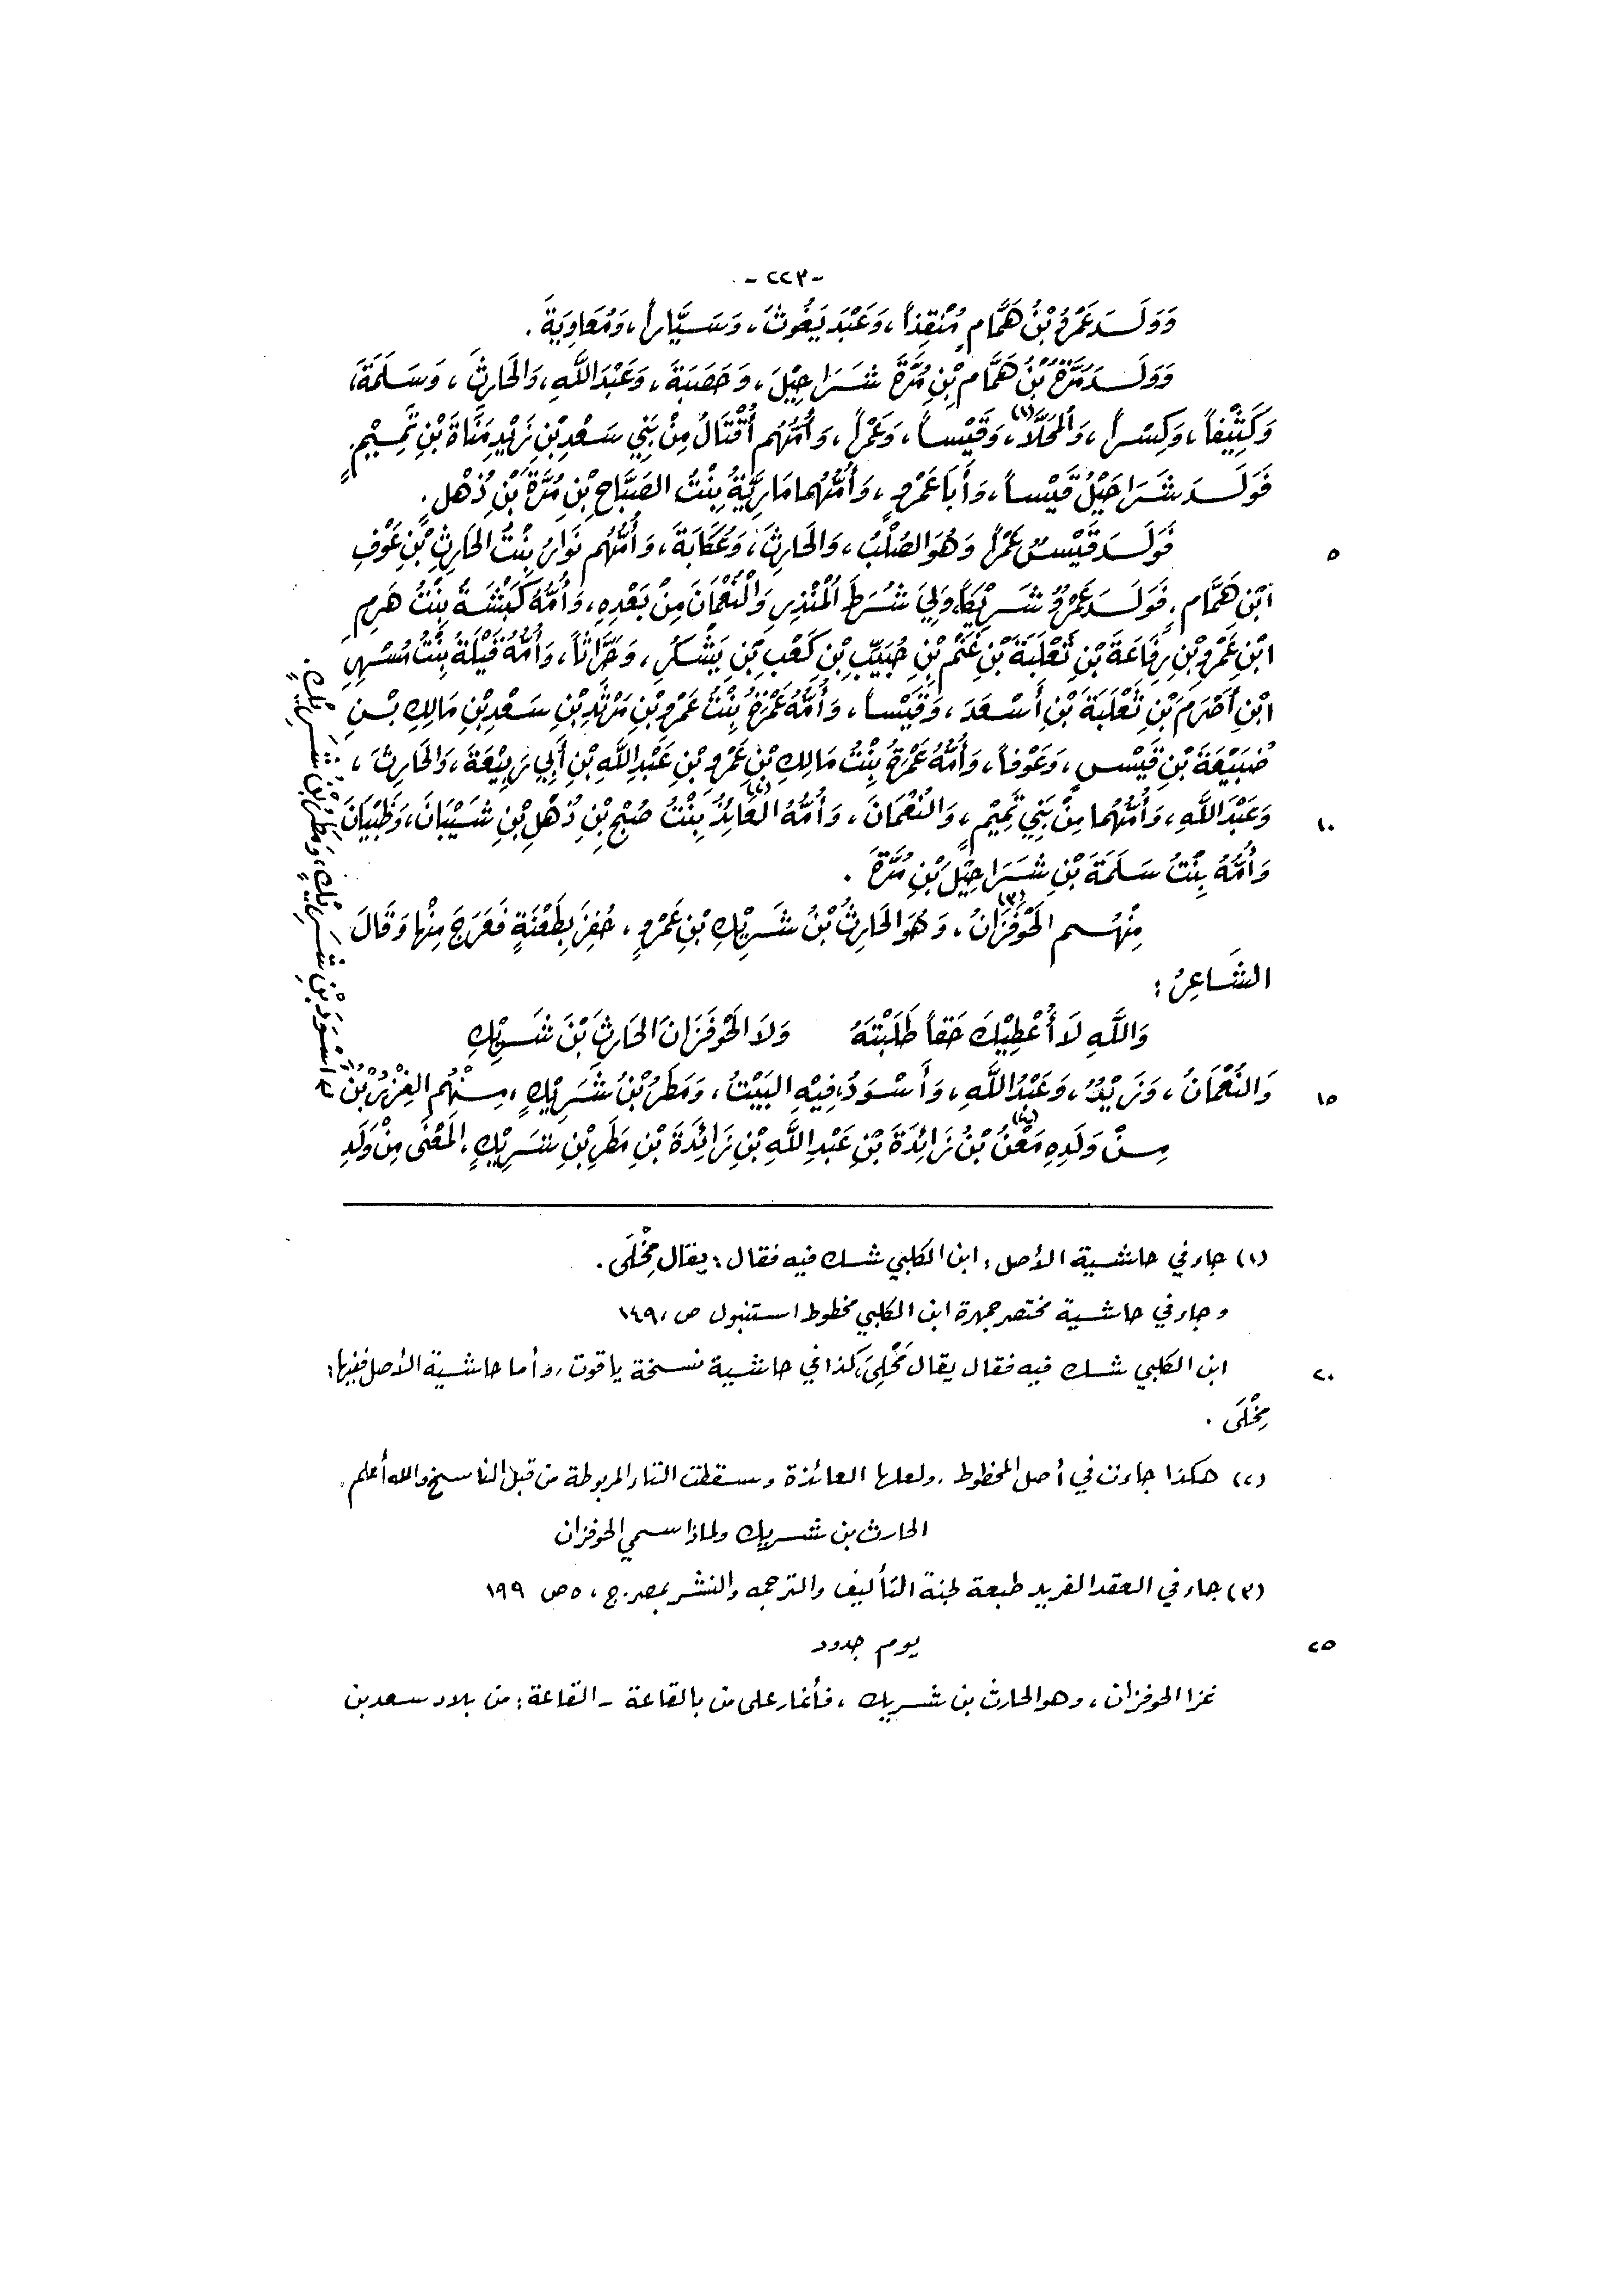 - ٢٢٣ -
وَوَلَدَ عَمْرُو بْنُ هَمَّامٍ مُنْقِذاً، وَعَبْدَ يَغُوثَ، وَسَيَّاراً، وَمُعَاوِيَةَ.
وَوَلَدَ مُرَّةُ بْنُ هَمَّامِ بْنِ مُرَّةَ شَرَاحِيْلَ، وَحَصَبَةَ، وَعَبْدَ اللَّهِ، وَالحَارِثَ، وَسَلَمَةَ،
وَكَثِيْفاً، وَكِسْراً، وَالمُحَلَّا(١)، وَقَيْساً، وَعَمْراً، وَأُمُّهُم أُقْتَالُ مِنْ بَنِي سَعْدِ بْنِ زَيْدِ مَنَاةَ بْنِ تَمِيْمٍ.
فَوَلَدَ شَرَاحِيْلُ قَيْساً، وَأَبَا عَمْرٍو، وَأُمُّهُما مَارِيَّةُ بِنْتُ الصَّبَّاحِ بْنِ مُرَّةَ بْنِ ذُهْلٍ.
٥ فَوَلَدَ قَيْسٌ عَمْراً وَهُوَ الصُّلْبُ، وَالحَارِثَ، وَعُكَابَةَ، وَأُمُّهُم نَوَارُ بِنْتُ الحَارِثِ بْنِ عَوْفِ
ابْنِ هَمَّامٍ. فَوَلَدَ عَمْرٌو شَرِيْكاً، وَلِيَ شُرَطَ المُنْذِرِ وَالنُّعْمَانَ مِنْ بَعْدِهِ، وَأُمُّهُ كَبْشَةُ بِنْتُ هَرِمِ
ابْنِ عَمْرِو بْنِ رِفَاعَةَ بْنِ ثَعْلَبَةَ بْنِ غَنْمِ بْنِ حُبَيِّبِ بْنِ كَعْبِ بْنِ يَشْكُرِ، وَحَرَّاثاً، وَأُمُّهُ قَيْلَةُ بِنْتُ مُسْهِرِ
ابْنِ أَصْرَمَ بْنِ ثَعْلَبَةَ بْنِ أَسْعَدَ، وَقَيْساً، وَأُمُّهُ عَمْرَةُ بِنْتُ عَمْرِو بْنِ مَرْثَدِ بْنِ سَعْدِ بْنِ مَالِكِ بْنِ
ضُبَيْعَةَ بْنِ قَيْسٍ، وَعَوْفاً، وَأُمُّهُ عَمْرَةُ بِنْتُ مَالِكِ بْنِ عَمْرِو بْنِ عَبْدِ اللَّهِ بْنِ أَبِي رَبِيْعَةَ، وَالحَارِثَ،
١٠ وَعَبْدَ اللَّهِ، وَأُمُّهُما مِنْ بَنِي تَمِيْمٍ، وَالنُّعْمَانَ، وَأُمُّهُ العَائِذُ(٢) بِنْتُ صُبْحِ بْنِ ذُهْلِ بْنِ شَيْبَانَ، وَظَبْيَانَ
وَأُمُّهُ بِنْتُ سَلَمَةَ بْنِ شَرَاحِيْلَ بْنِ مُرَّةَ.
مِنْهُم الحَوْفَزَانُ(٣)، وَهُوَ الحَارِثُ بْنُ شَرِيْكِ بْنِ عَمْرٍو، حُفِزَ بِطَعْنَةٍ فَعَرَجَ مِنْها وَقَالَ
الشَّاعِرُ:
وَاللَّهِ لَا أُعْطِيْكَ حَقاً طَلَبْتَهُ وَلَا الحَوْفَزَانَ الحَارِثَ بْنَ شَرِيْكِ
١٥ وَالنُّعْمَانُ، وَزَيْدٌ، وَعَبْدُ اللَّهِ، وَأَسْوَدُ، فِيْهِ البَيْتُ، وَمَطَرُ بْنُ شَرِيْكٍ، مِنْهُم الفِزْرُ بْنُ
أَسْوَدَ بْنِ شَرِيْكٍ، وَمَطَرُ بْنُ شَرِيْكٍ.
مِنْ وَلَدِهِ مَعْنُ(٤) بْنُ زَائِدَةَ بْنِ عَبْدِ اللَّهِ بْنِ زَائِدَةَ بْنِ مَطَرِ بْنِ شَرِيْكٍ. المَعْنَى مِنْ وَلَدِ
(١) جاء في حاشية الأصل: ابن الكلبي شك فيه فقال: يقال مِخْلَى.
وجاء في حاشية مختصر جمهرة ابن الكلبي مخطوط استنبول ص، ١٤٩
٢٠ ابن الكلبي شك فيه فقال يقال مَخْلِيَ، كذا في حاشية نسخة ياقوت، وأما حاشية الأصل ففيها:
مِخْلَى.
(٢) هكذا جاءت في أصل المخطوط، ولعلها العائذة وسقطت التاء المربوطة من قبل الناسخ والله أعلم.
الحارث بن شريك ولماذا سمي الحوفزان
(٣) جاء في العقد الفريد طبعة لجنة التأليف والترجمه والنشر بمصر. ج، ٥ ص ١٩٩
٢٥ يوم جدود
غزا الحوفزان، وهو الحارث بن شريك، فأغار على من بالقاعة - القاعة: من بلاد سعد بن